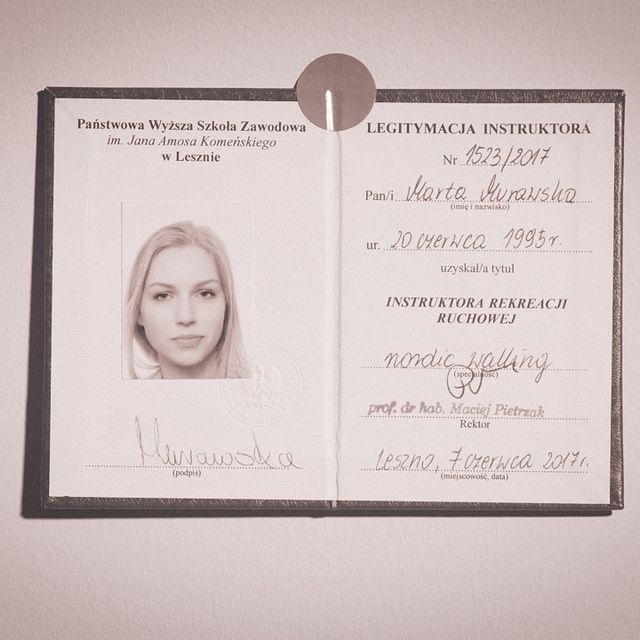 Państwowa Wyższa Szkoła Zawodowa
im. Jana Amosa Komeńskiego
w Lesznie
Murawska
(podpis)
LEGITYMACJA INSTRUKTORA
Nr 1523/2017
Pan/i Marta Murawska
(imię i nazwisko)
ur. 20 czerwca 1995r.
uzyskał/a tytuł
INSTRUKTORA REKREACJI
RUCHOWEJ
nordic walking
(specjalność)
prof. dr hab. Maciej Pietrzak
Rektor
Leszno, 7 czerwca 2017r.
(miejscowość, data)